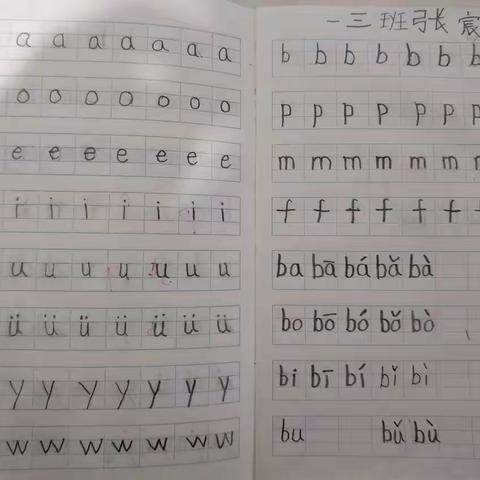 a a a a a a a
o o o o o o o
e e e e e e e
i i i i i i i
u u u u u u u
ü ü ü ü ü ü ü
y y y y y y y
w w w w w w w
一三班张宸
b b b b b b b
p p p p p p p
m m m m m m m
f f f f f f f
ba bā bá bǎ bà
bo bō bó bǒ bò
bi bī bí bǐ bì
bu bǔ bù